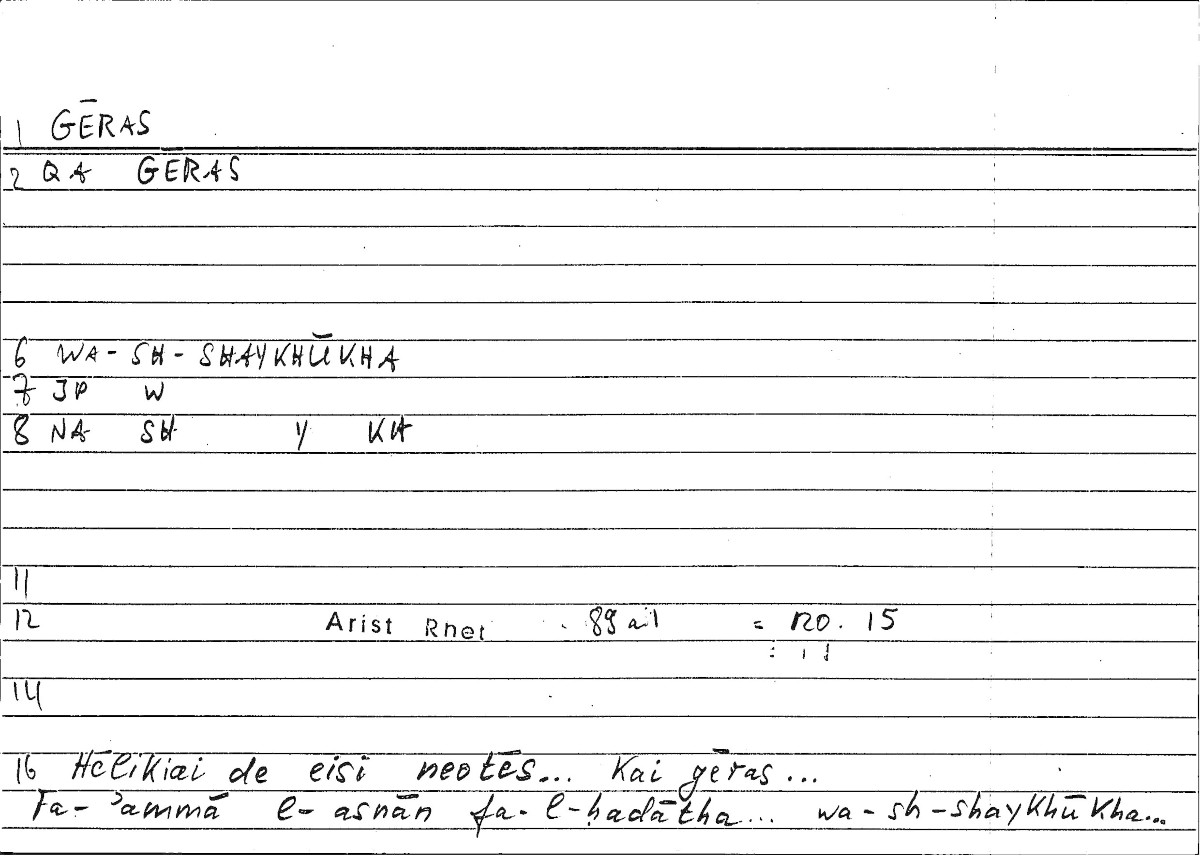 1 GĒRAS
2 QA GĒRAS
6 WA-SH-SHAYKHŪKHA
7 JP W
8 NA SH Y KH
11
12 Arist Rhet 89a1 = 120.15
14
16 Hēlikiai de eisi neotēs... Kai gēras...
Fa-ʾammā l-asnān fa-l-ḥadātha... wa-sh-shaykhūkha...